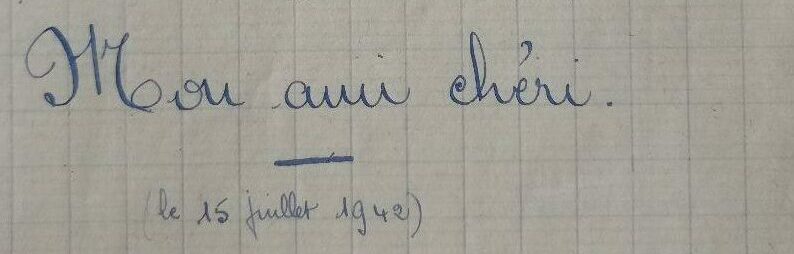 Mon ami chéri.
(le 15 juillet 1942)